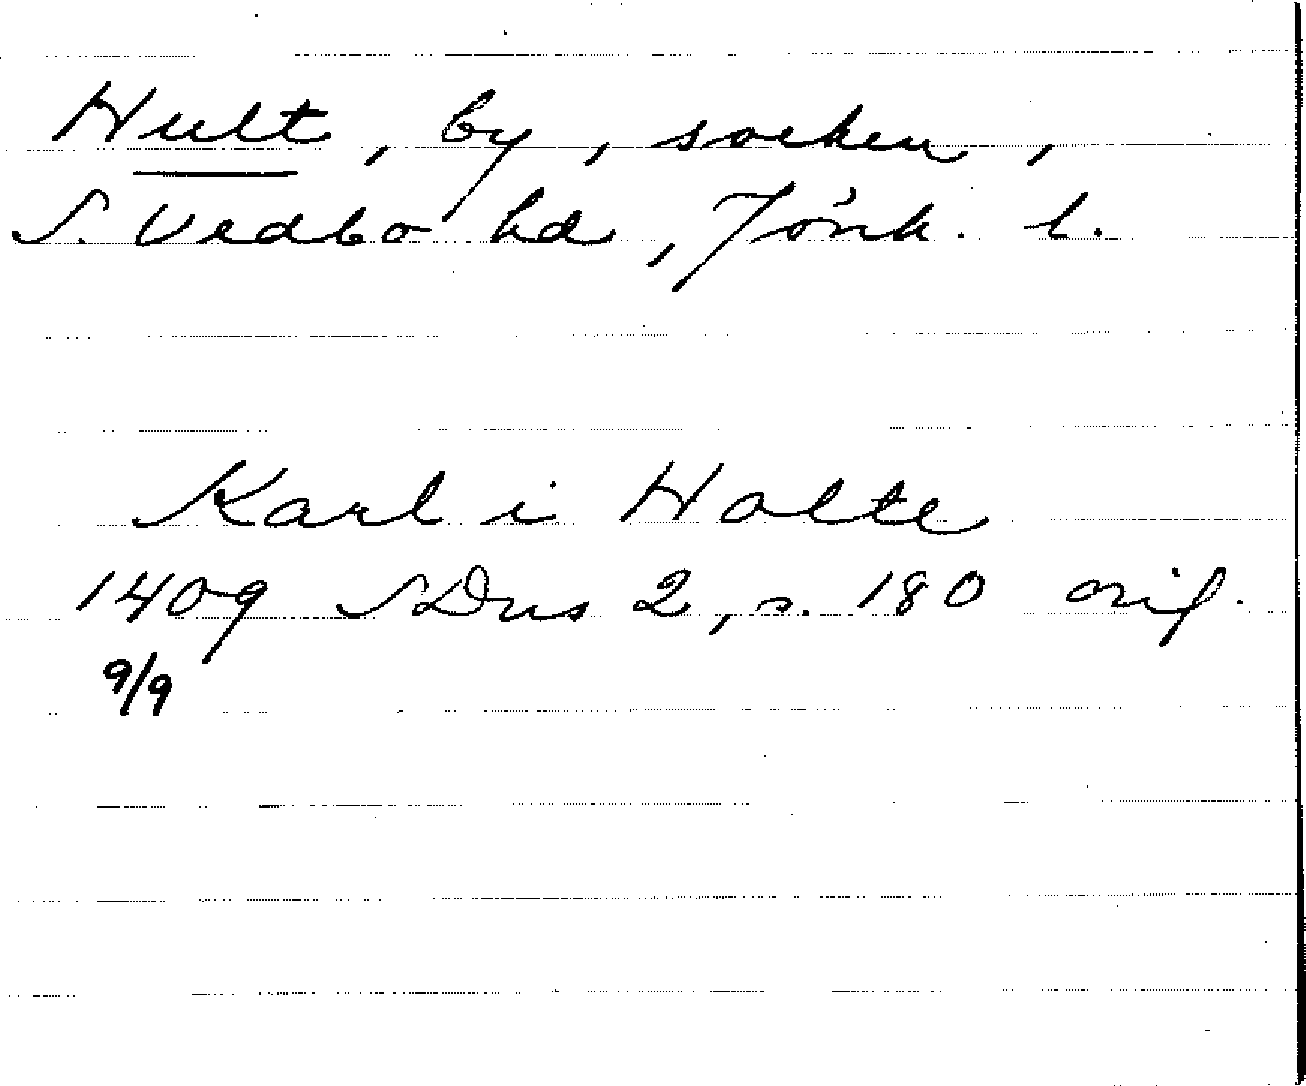 Hult, by, socken,
S. Vedbo hd, Jönk. l.
Karl i Holte
1409 SDns 2, s. 180 orig.
9/9